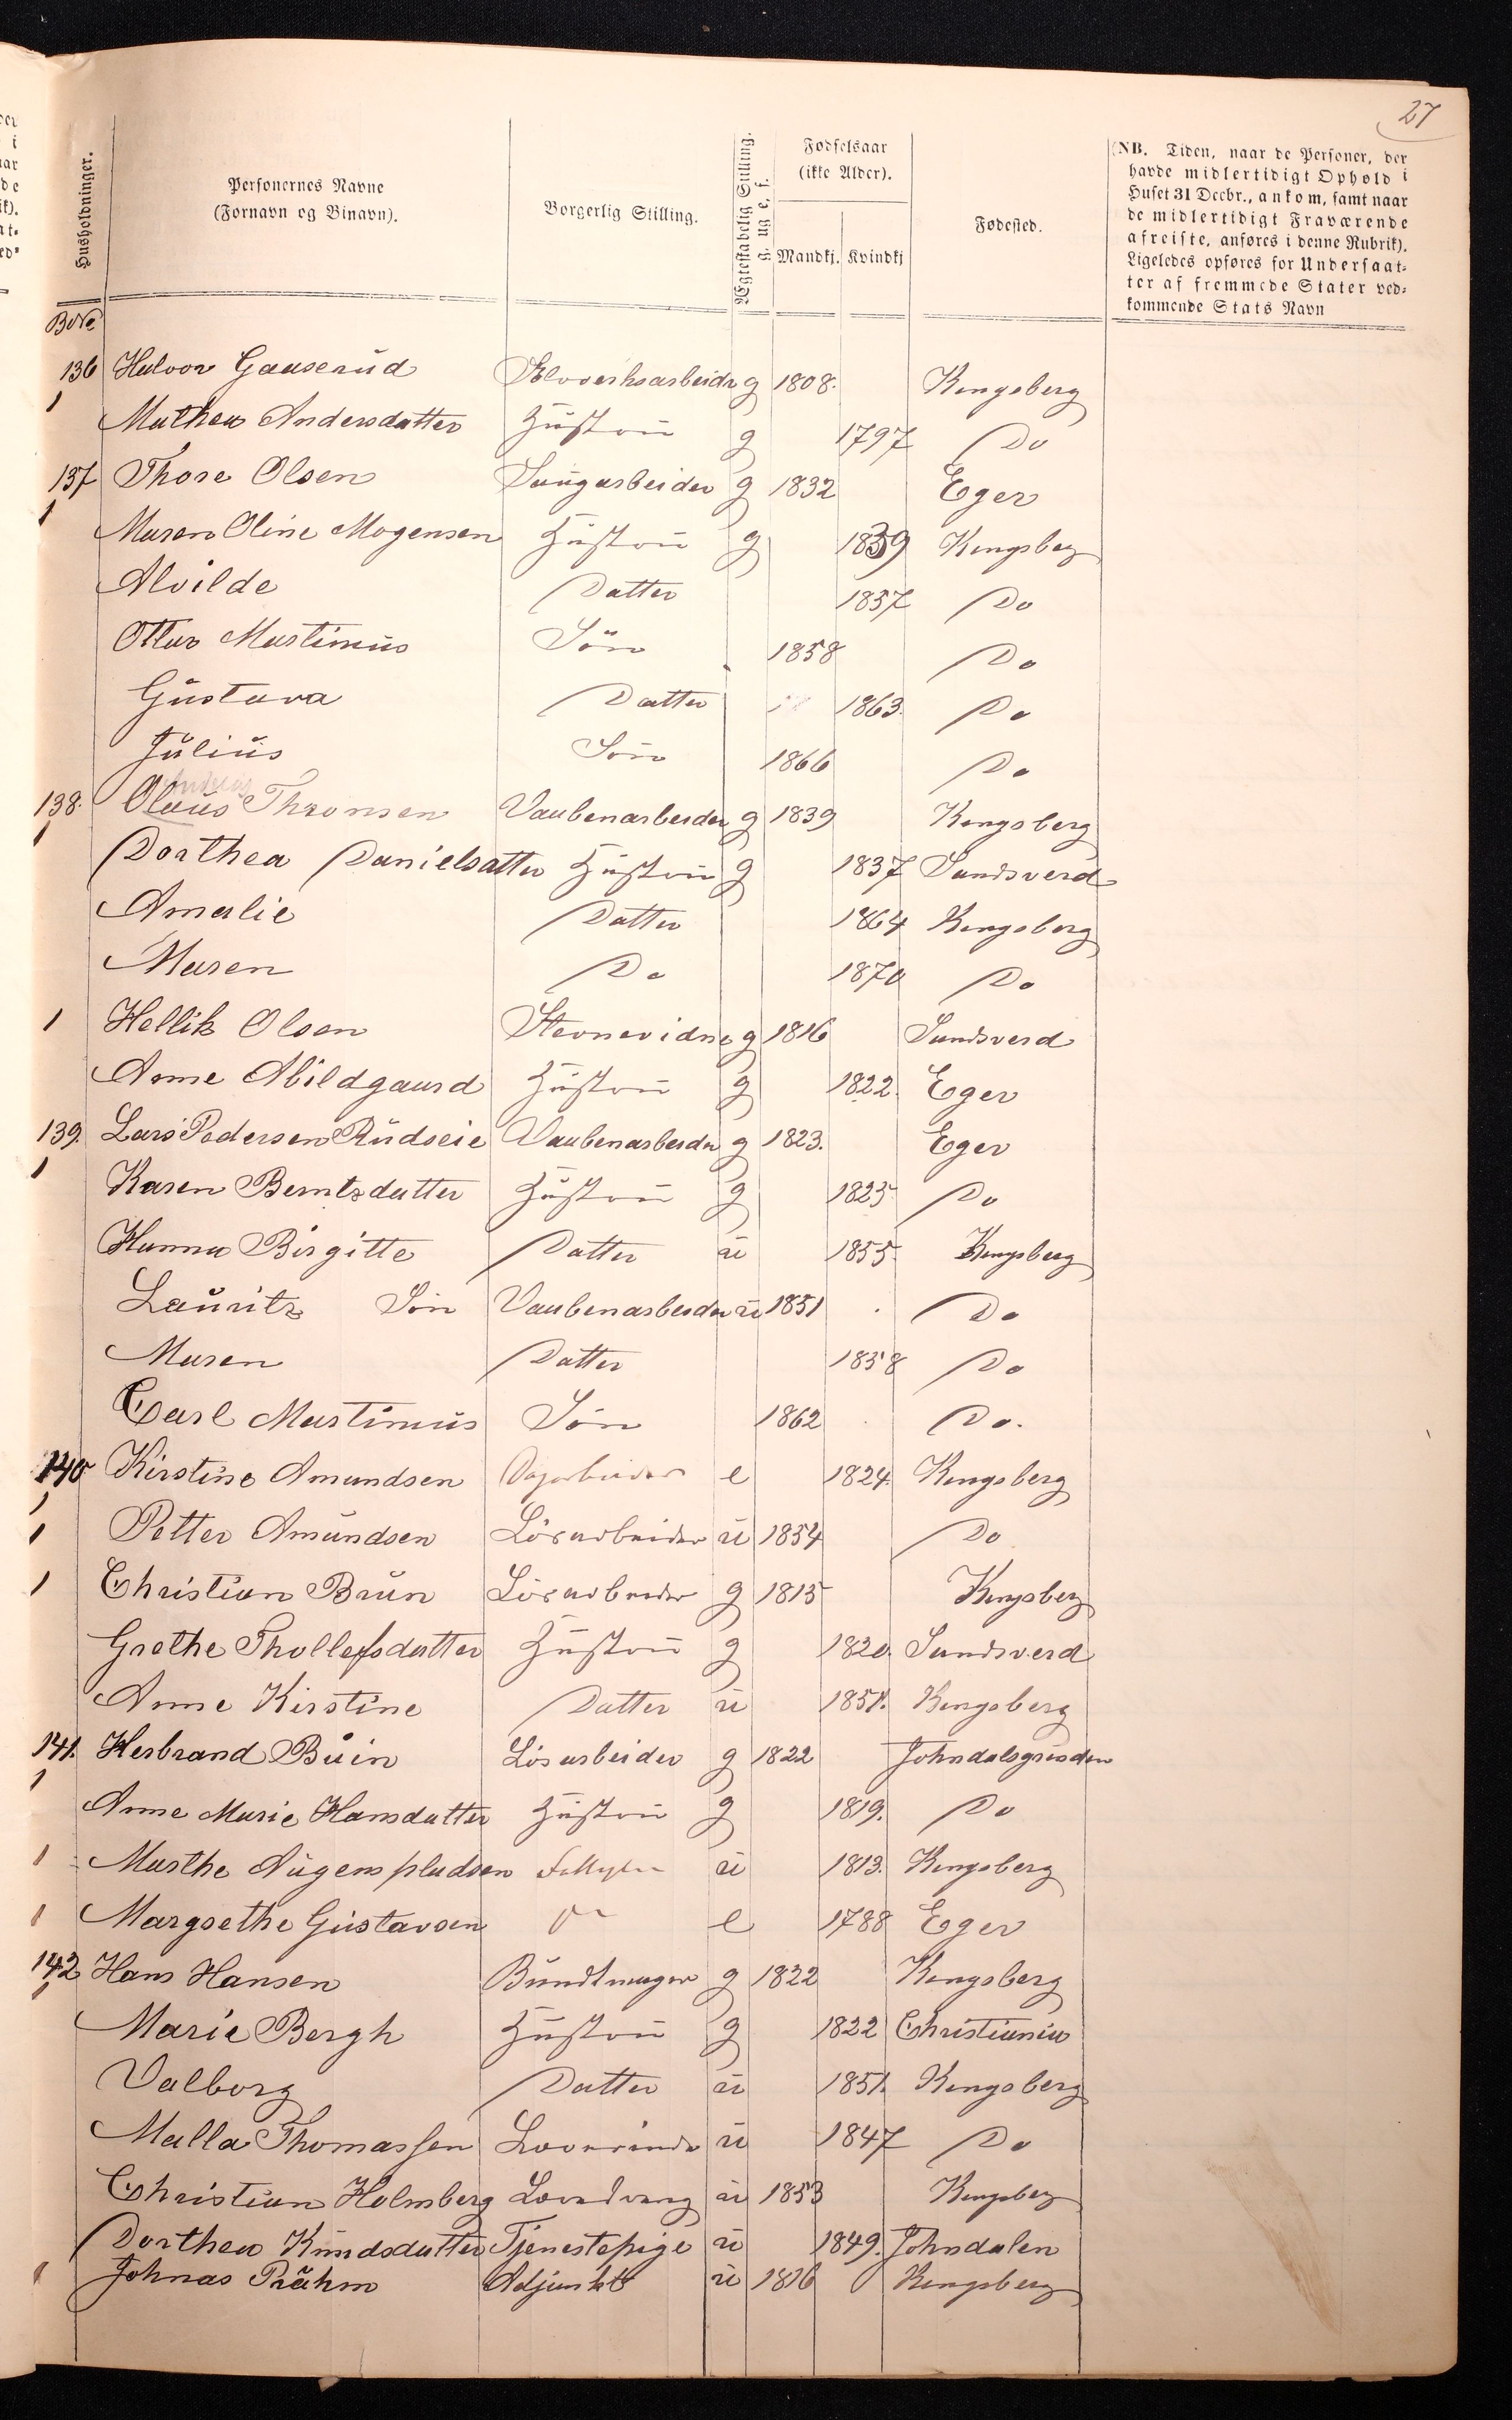 27
Husholdninger.
Personernes Navne
(Fornavn og Binavn).
Borgerlig Stilling.
Ægteskabelig Stilling.
g. ug e. f.
Fødselsaar
(ikke Alder).
Mandkj. Kvindkj
Fødested.
NB. Tiden, naar de Personer, der
havde midlertidigt Ophold i
Huset 31 Decbr., ankom, samt naar
de midlertidigt Fraværende
afreiste, anføres i denne Rubrik).
Ligeledes opføres for Undersaat-
ter af fremmede Stater ved-
kommende Stats Navn
136 Halvor Gauserud g 1808. Kongsberg
Mathea Andersdatter Hustru g 1797 Do
137 Thore Olsen Saugarbeider g 1832 Eger
Maren Oline Mogensen Hustru g 1839 Kongsberg
Alvilde Datter 1857 Do
Ottar Martinius Søn 1858 Do
Gustava Datter 1863. Do
Julius Søn 1866 Do
138. Olaus Thronsen Vaabenarbeider g 1839 Kongsberg
Dorthea Danielsatter Hustru g 1837 Sandsverd
Amalie Datter 1864 Kongsberg
Maren Do 1870 Do
Hellik Olsen Stevnevidne g 1816 Sandsverd
Anne Abildgaard Hustru g 1822. Eger
139. Lars Pedersen Rudseie Vaabenarbeider g 1823. Eger
Karen Berntzdatter Hustru g 1825 Do
Hanna Birgitte Datter u 1855 Kongsberg
Lauritz Søn Vaabenarbeider u 1851 Do
Maren Datter 1858 Do
Carl Martinius Søn 1862 Do.
140 Kirstine Amundsen Dagarbeider e 1824. Kongsberg
Petter Amundsen Løsarbeider u 1854 Do
Christian Brun Løsarbeider g 1815 Kongsberg
Grethe Thollefsdatter Hustru g 1820. Sandsverd
Anne Kirstine Datter u 1851. Kongsberg
141. Herbrand Buin Løsarbeider g 1822 Johndalsgruden
Anne Marie Hansdatter Hustru g 1819. Do
Marthe Augenspladsen u 1813. Kongsberg
Margrethe Gustavsen e 1788 Eger
142 Hans Hansen Bundtmager g 1822 Kongsberg
Marie Bergh Hustru g 1822 Christiania
Valborg Datter u 1851. Kongsberg
Malla Thomassen u 1847 Do
Christian Holmberg u 1853 Kongsberg
Dorthea Knudsdatter Tjenestepige u 1849. Johndalen
Johnas Prahm Adjunkt u 1816 Kongsberg